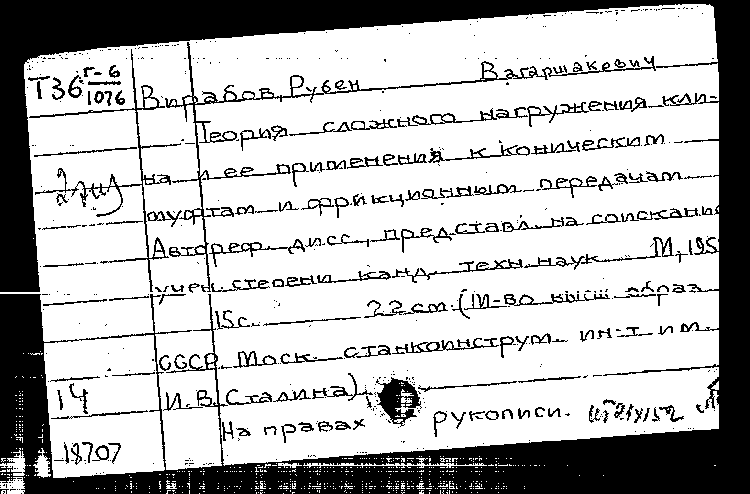 Т36 г-6/1076
Вирабов, Рубен Вагаршакевич
Теория сложного нагружения кли-
на и ее применения к коническим
муфтам и фрикционным передачам
Автореф. дисс., представл. на соискани
учен. степени канд. техн. наук М, 195
15с. 22 см. (М-во высш. образ.
СССР. Моск. станкоинструм. ин-т им.
И.В. Сталина)
На правах рукописи.
14
18707